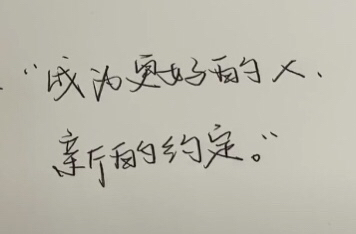 “成为更好的人、
新的约定。”